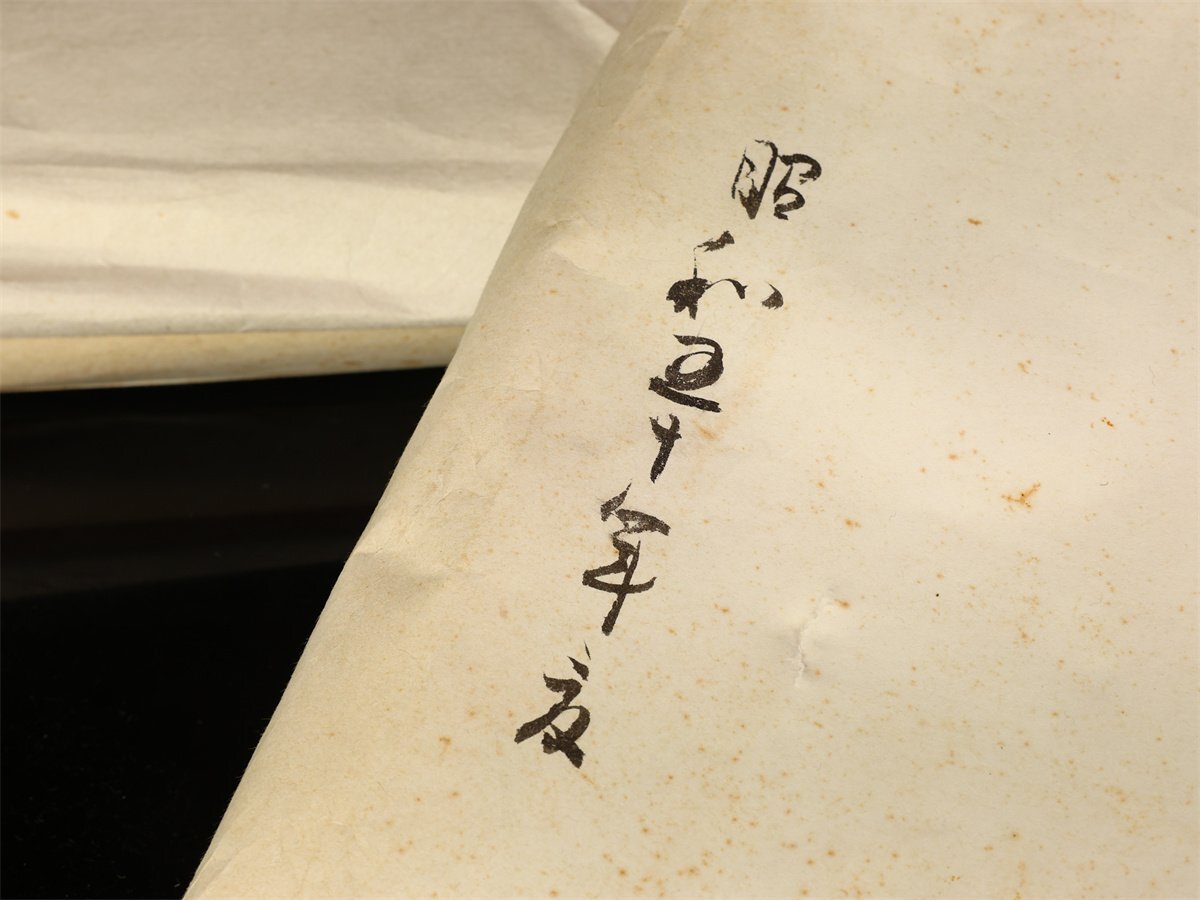 昭和五十年度